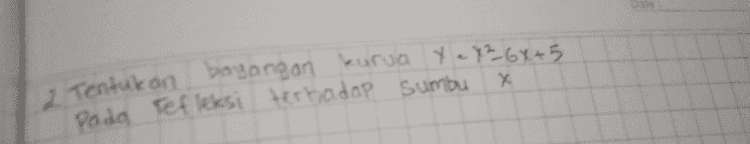 Date
2 Tentukan bayangan kurva y = x²-6x+5
Pada refleksi terhadap sumbu x